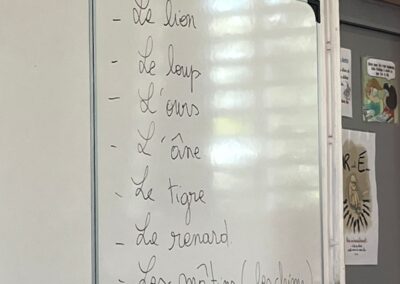 - Le lion
- Le loup
- L'ours
- L'âne
- Le tigre
- Le renard
- Les mâtins (les chiens)